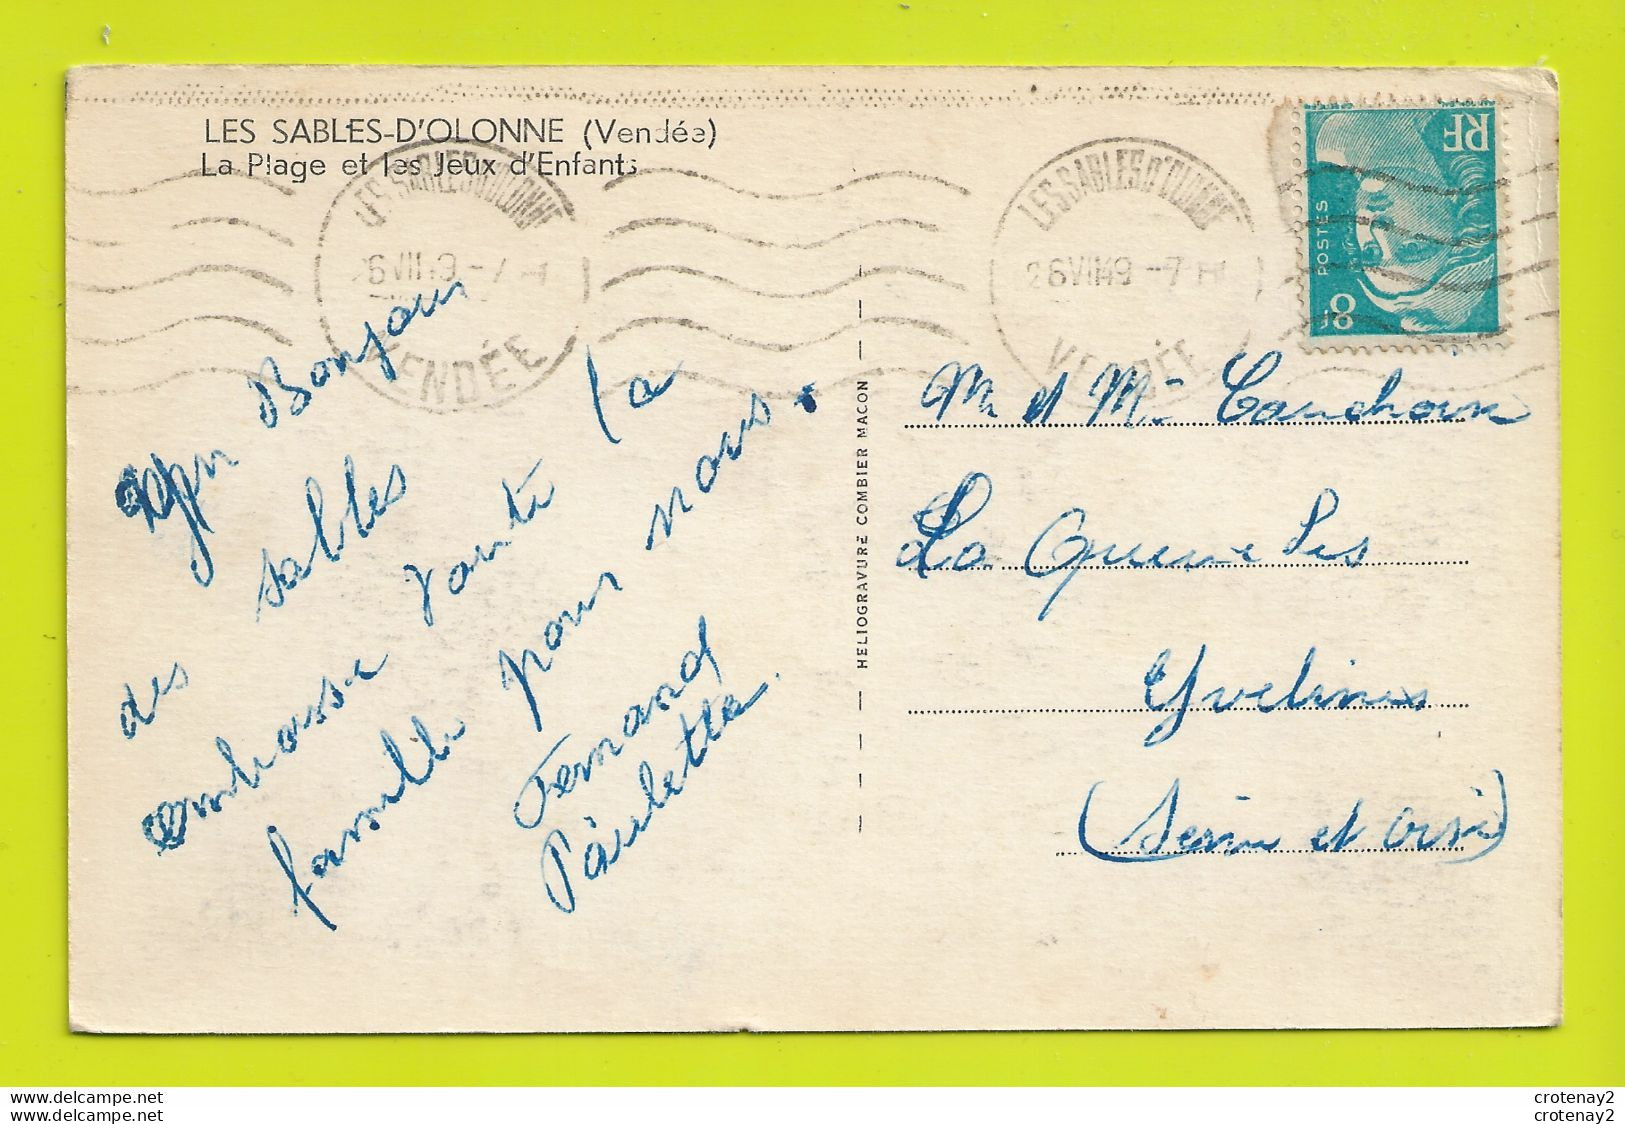 LES SABLES-D'OLONNE (Vendée)
La Plage et les Jeux d'Enfants
LES SABLES D'OLONNE
VENDÉE
LES SABLES D'OLONNE
26 VII 49 -7 H
VENDÉE
RF
POSTES
8F
Un Bonjour
des sables
embrasse toute la
famille pour nous.
Fernand
Paulette
HELIOGRAVURE COMBIER MACON
Mr et Mme Cauchoix
La Queue les
Yvelines
(Seine et Oise)
crotenay2
crotenay2